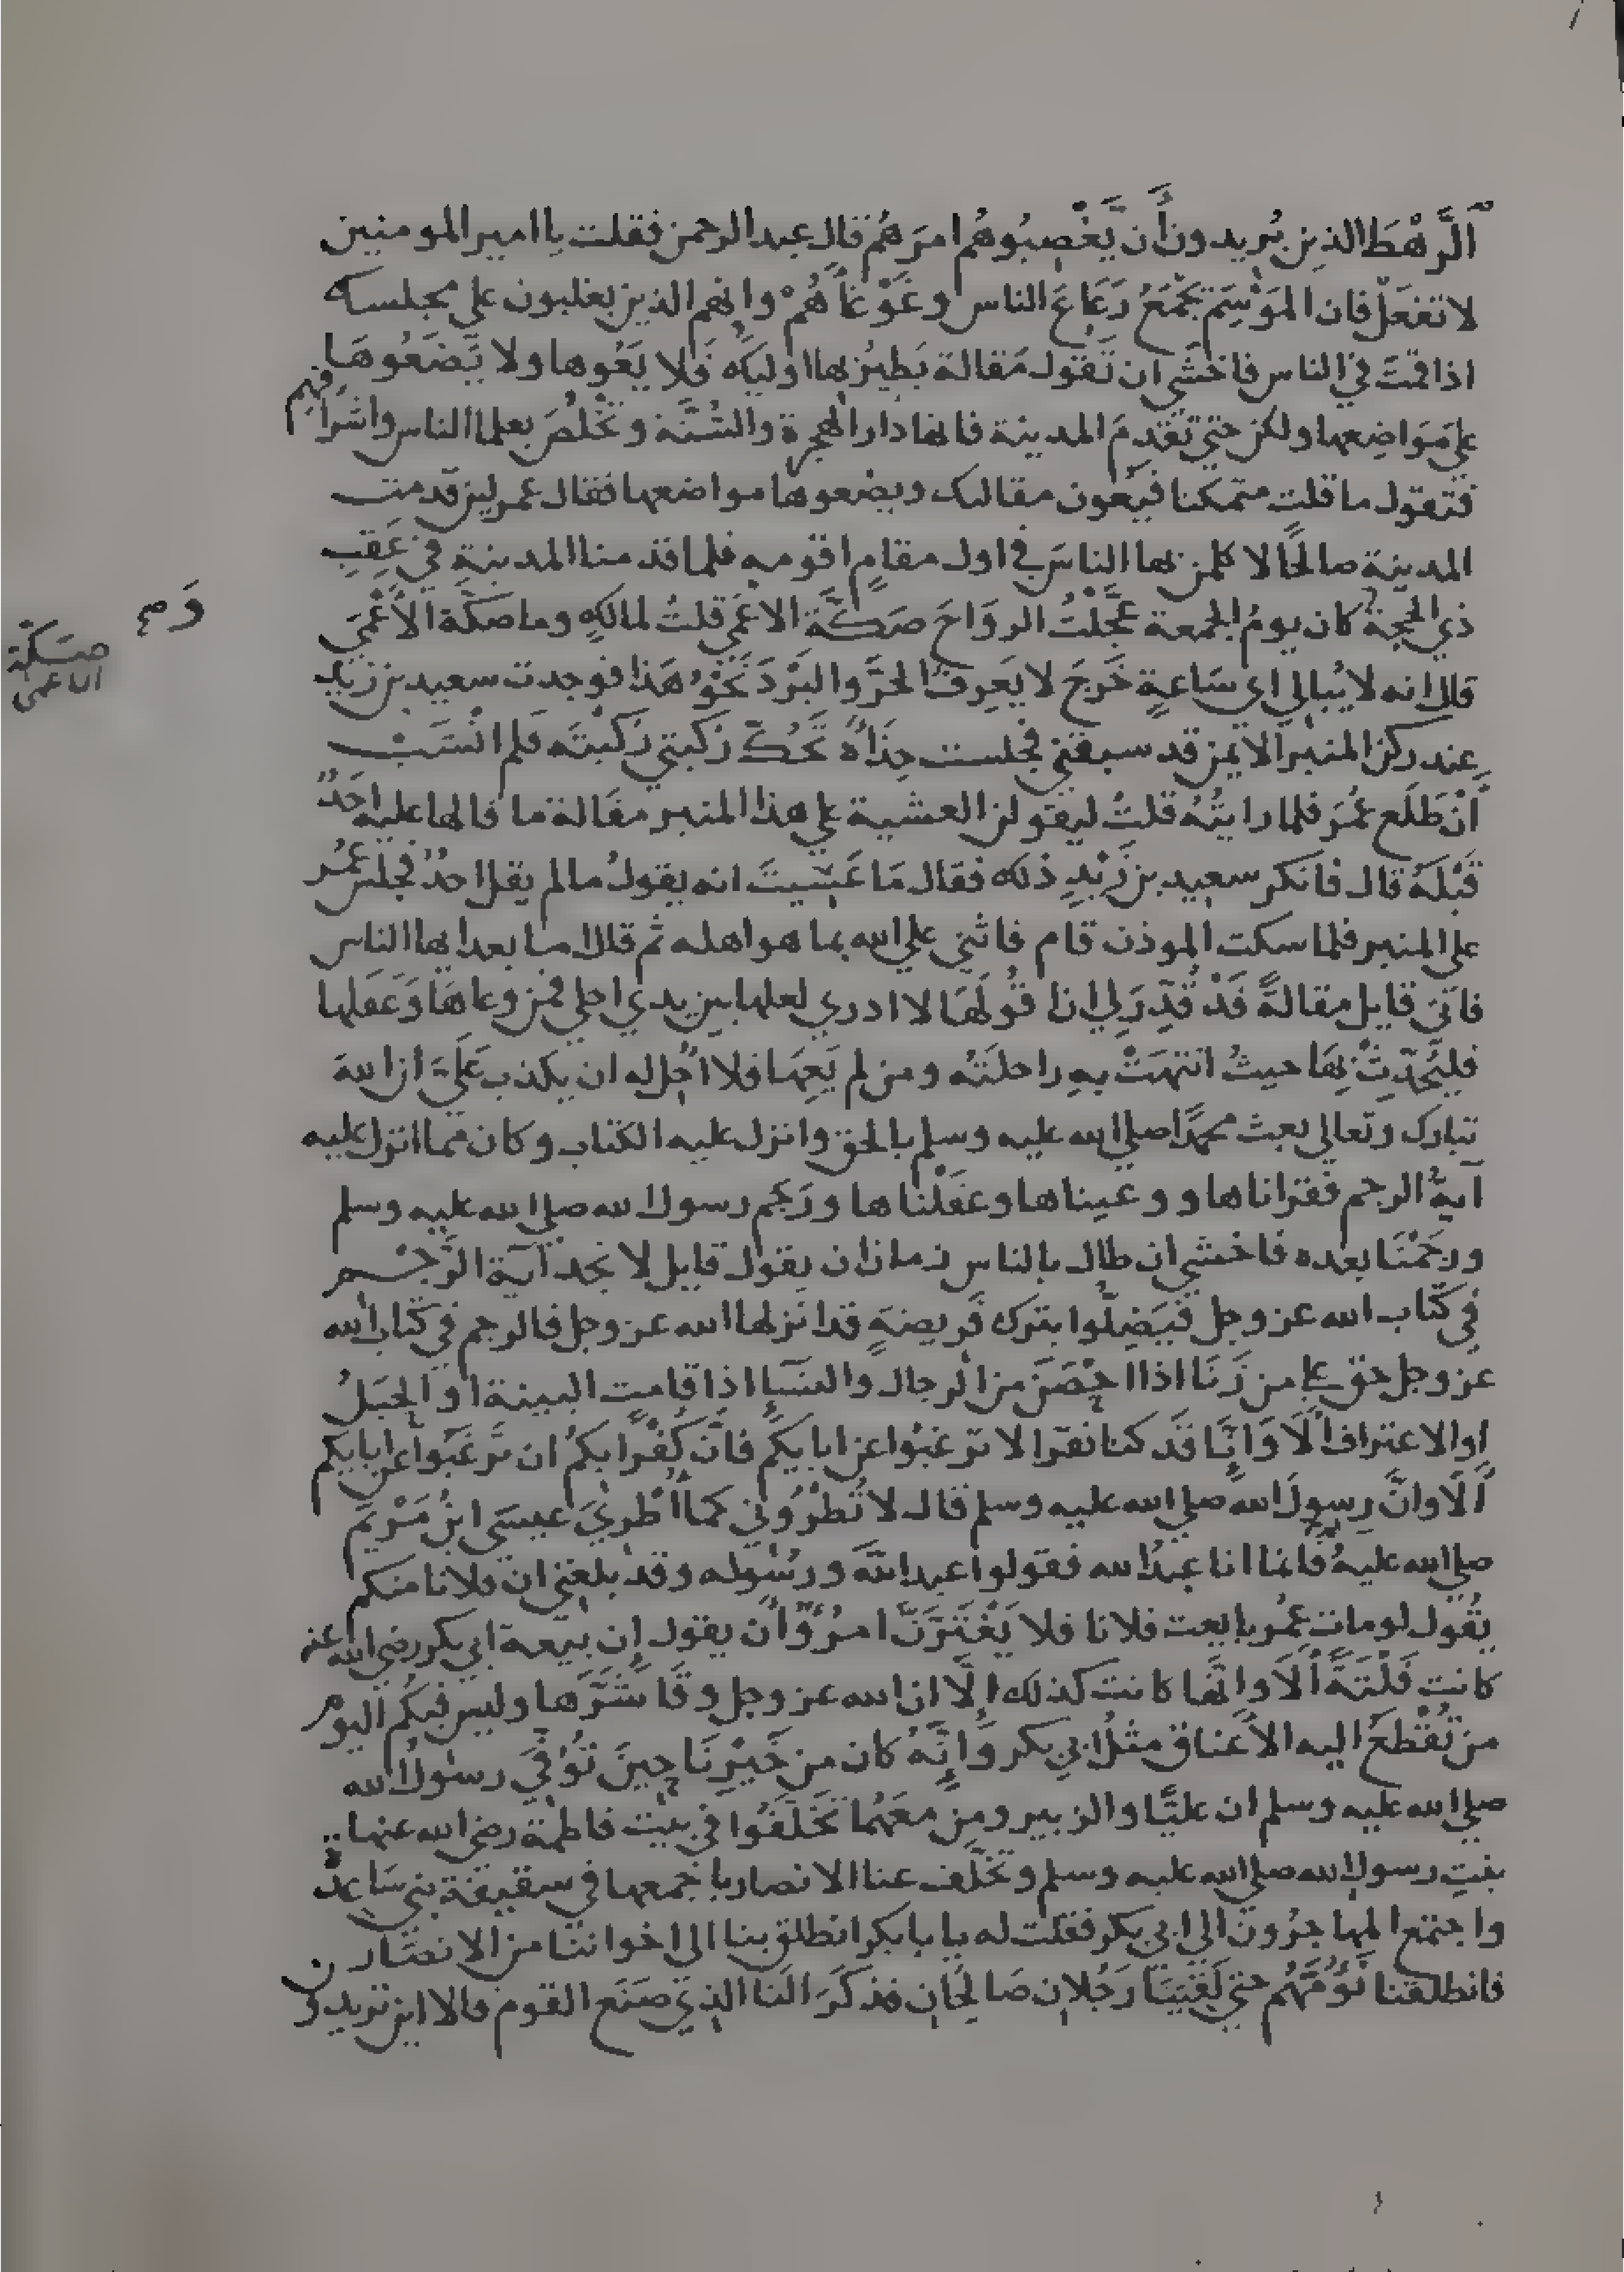 الرَّهْطَ الذين يُريدون أن يَّغْصِبُوهُم امرَهُم قال عبد الرحمن فقلت يا امير المومنين
لا تفعَلْ فان المَوْسِمَ يَجْمَعُ رَعَاعَ الناس وغَوْغَاهُمْ وانهم الذين يغلبون على مجلسك
اذا قمتَ في الناس فاخشى ان تَقول مَقالة يَطيرُ بها اوليك فَلا يَعُوها ولا يَضَعُوهَا
على مَوَاضِعها ولكن حتى تَقدِمَ المدينة فانها دار الهجرة والسُّنَّة وتَخْلُصَ بعلما الناس واشرافهم
فتقول ما قلت متمكنا فيَعون مقالتك ويضعوها مواضعها فقال عمر لين قدمت
المدينة صالحًا لا كلمن بها الناسَ في اول مقامٍ اقومه فلما قدمنا المدينةِ في عَقِبِ
ذي الحجة كان يومُ الجمعة عَجَّلْتُ الروَاحَ صَكَّة الاعْمَى قلتُ لمالكٍ وما صَكَّة الأعْمَى
قال انه لا يُبالي اي سَاعةٍ خَرجَ لا يَعرِفُ الحَرَّ والبَرْدَ نَحْوُ هَذا فوجدت سعيد بن زيد
عند ركن المنبر الايمن قد سبقني فجلست حِذَاهُ تَحُكُّ رُكبتي رُكبتَه فلم انْشَبْ
أنْ طَلَع عُمَر فلما رايتُهُ قلتُ ليقولن العشية على هذا المنبر مقَالة ما قالها عليه احَدٌ
قَبْلَهُ قال فانكر سعيد بن زَيْدٍ ذلك فقال مَا عَسَيتَ انه يقولُ ما لم يقل احدٌ فجلس عُمر
على المنبر فلما سكت الموذن قام فاثنى على الله بما هو اهله ثم قال اما بعد ايها الناس
فاني قايل مقالةً قَدْ قُدِّرَ لي ان اقُولَهَا لا ادري لعلها بين يدي اجلي فمن وعاهَا وَعَقلها
فليُحَدِّثْ بِهَا حيثُ انتهَتْ بهِ راحلَتُه ومن لم يَعِهَا فلا اُحِل له ان يكذب عَلَيَّ ان اللهَ
تبارك وتعالى بعث محمدًا صلى الله عليه وسلم بالحق وانزل عليه الكتاب وكان مما انزل عليه
آيةُ الرجم فقراناها ووعيناها وعقلْناها ورَجَم رسول الله صلى الله عليه وسلم
ورَجَمْنَا بعده فاخشى ان طال بالناس زمان ان يقول قايل لا نجد آيةَ الرَّجْم
في كتاب الله عز وجل فيَضِلُّوا بترك فَريضةٍ قد انزلها الله عز وجل فالرجم في كتاب الله
عز وجل حق على من زَنَا اذا احْصَنَ من الرجال والنسَآءِ اذا قامت البينة او الحَبَلُ
او الاعتراف ألَا وَإنَّا قَد كنا نقرا لا ترغبُوا عن ابايكم فانَّ كُفْرًا بكم ان تَرغَبُوا عن ابايكم
ألَا وانَّ رسولَ الله صلى الله عليه وسلم قال لا تُطْرُوني كمَا أُطْرِيَ عيسَى ابنُ مَرْيَم
صلى الله عليه فانما انا عبدُ الله فقولوا عبد الله ورسُوله وقد بلغني ان فلانا منكم
يقُول لو مات عمُر بايعت فلانا فلا يَغْتَرَّنَّ امرُؤٌ أن يقول إن بَيعة ابي بكر رضي الله عنه
كانت فَلْتَةً ألَا وانَّها كانت كذلك إلَّا ان الله عز وجل وقَا شَرَّها وليس فيكُم اليوم
من تُقْطَعُ اليه الاعناق مثلُ ابي بكر وَإنَّهُ كان من خَيْرِنَا حِينَ تُوُفِّيَ رسول الله
صلى الله عليه وسلم ان عليًّا والزبير ومن معَهُمَا تَخَلَّفُوا في بيت فاطمة رضي الله عنها
بنتِ رسول الله صلى الله عليه وسلم وتخَلَّف عنا الانصار باجمعها في سقيفة بني سَاعِدة
واجتمع المهاجرُون الى ابي بكر فقلت له يا با بكر انطلق بنا الى اخواننا من الانصَار
فانطلقنا نَؤُمُّهُم حتى لَقِيَنَا رَجُلان صَالحَان فذكَرَا لنَا الذي صَنَع القوم فقالا اين تريدون
صَكّة
الاعمى